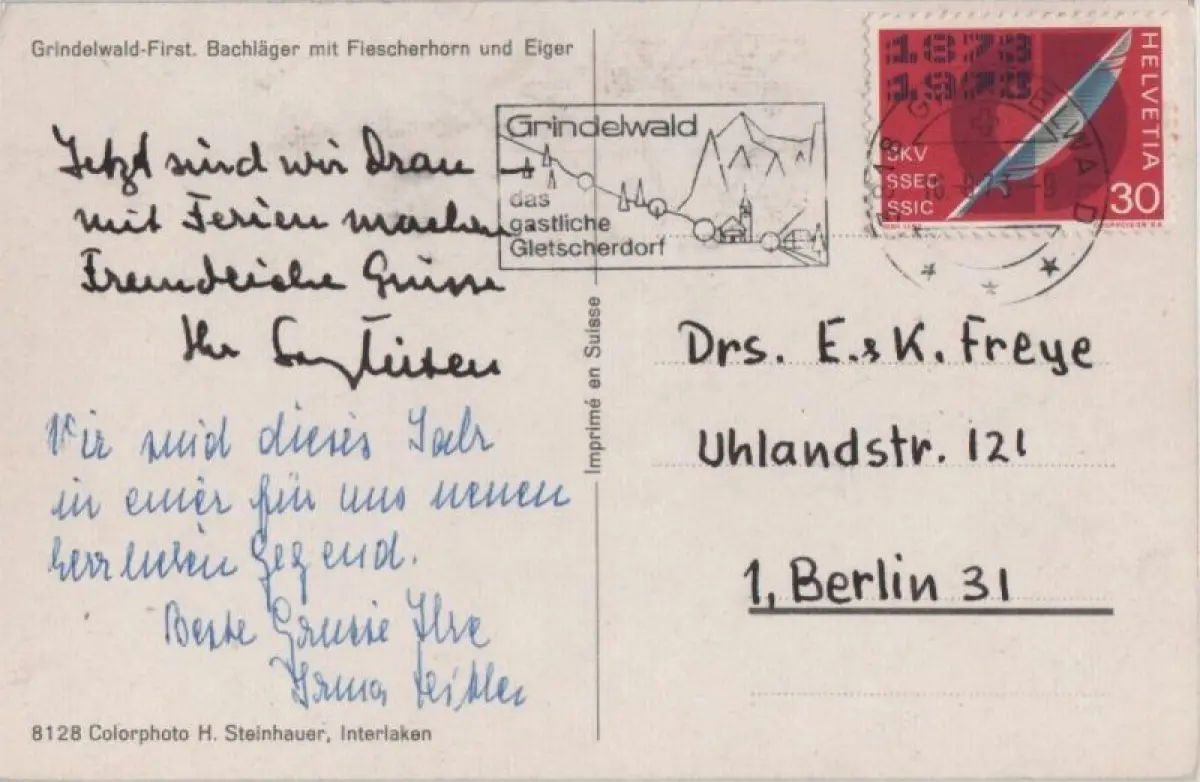 Grindelwald-First. Bachläger mit Fiescherhorn und Eiger
Jetzt sind wir dran
mit Ferien machen.
Freundliche Grüsse
Ihr
Wir sind dieses Jahr
in einer für uns neuen
herrlichen Gegend.
Beste Grüsse Ihre
Irma
8128 Colorphoto H. Steinhauer, Interlaken
Imprimé en Suisse
Grindelwald
das
gastliche
Gletscherdorf
1873
1973
HELVETIA
SKV
SSEC
SSIC
30
GRINDELWALD
Drs. E. & K. Freye
Uhlandstr. 121
1, Berlin 31